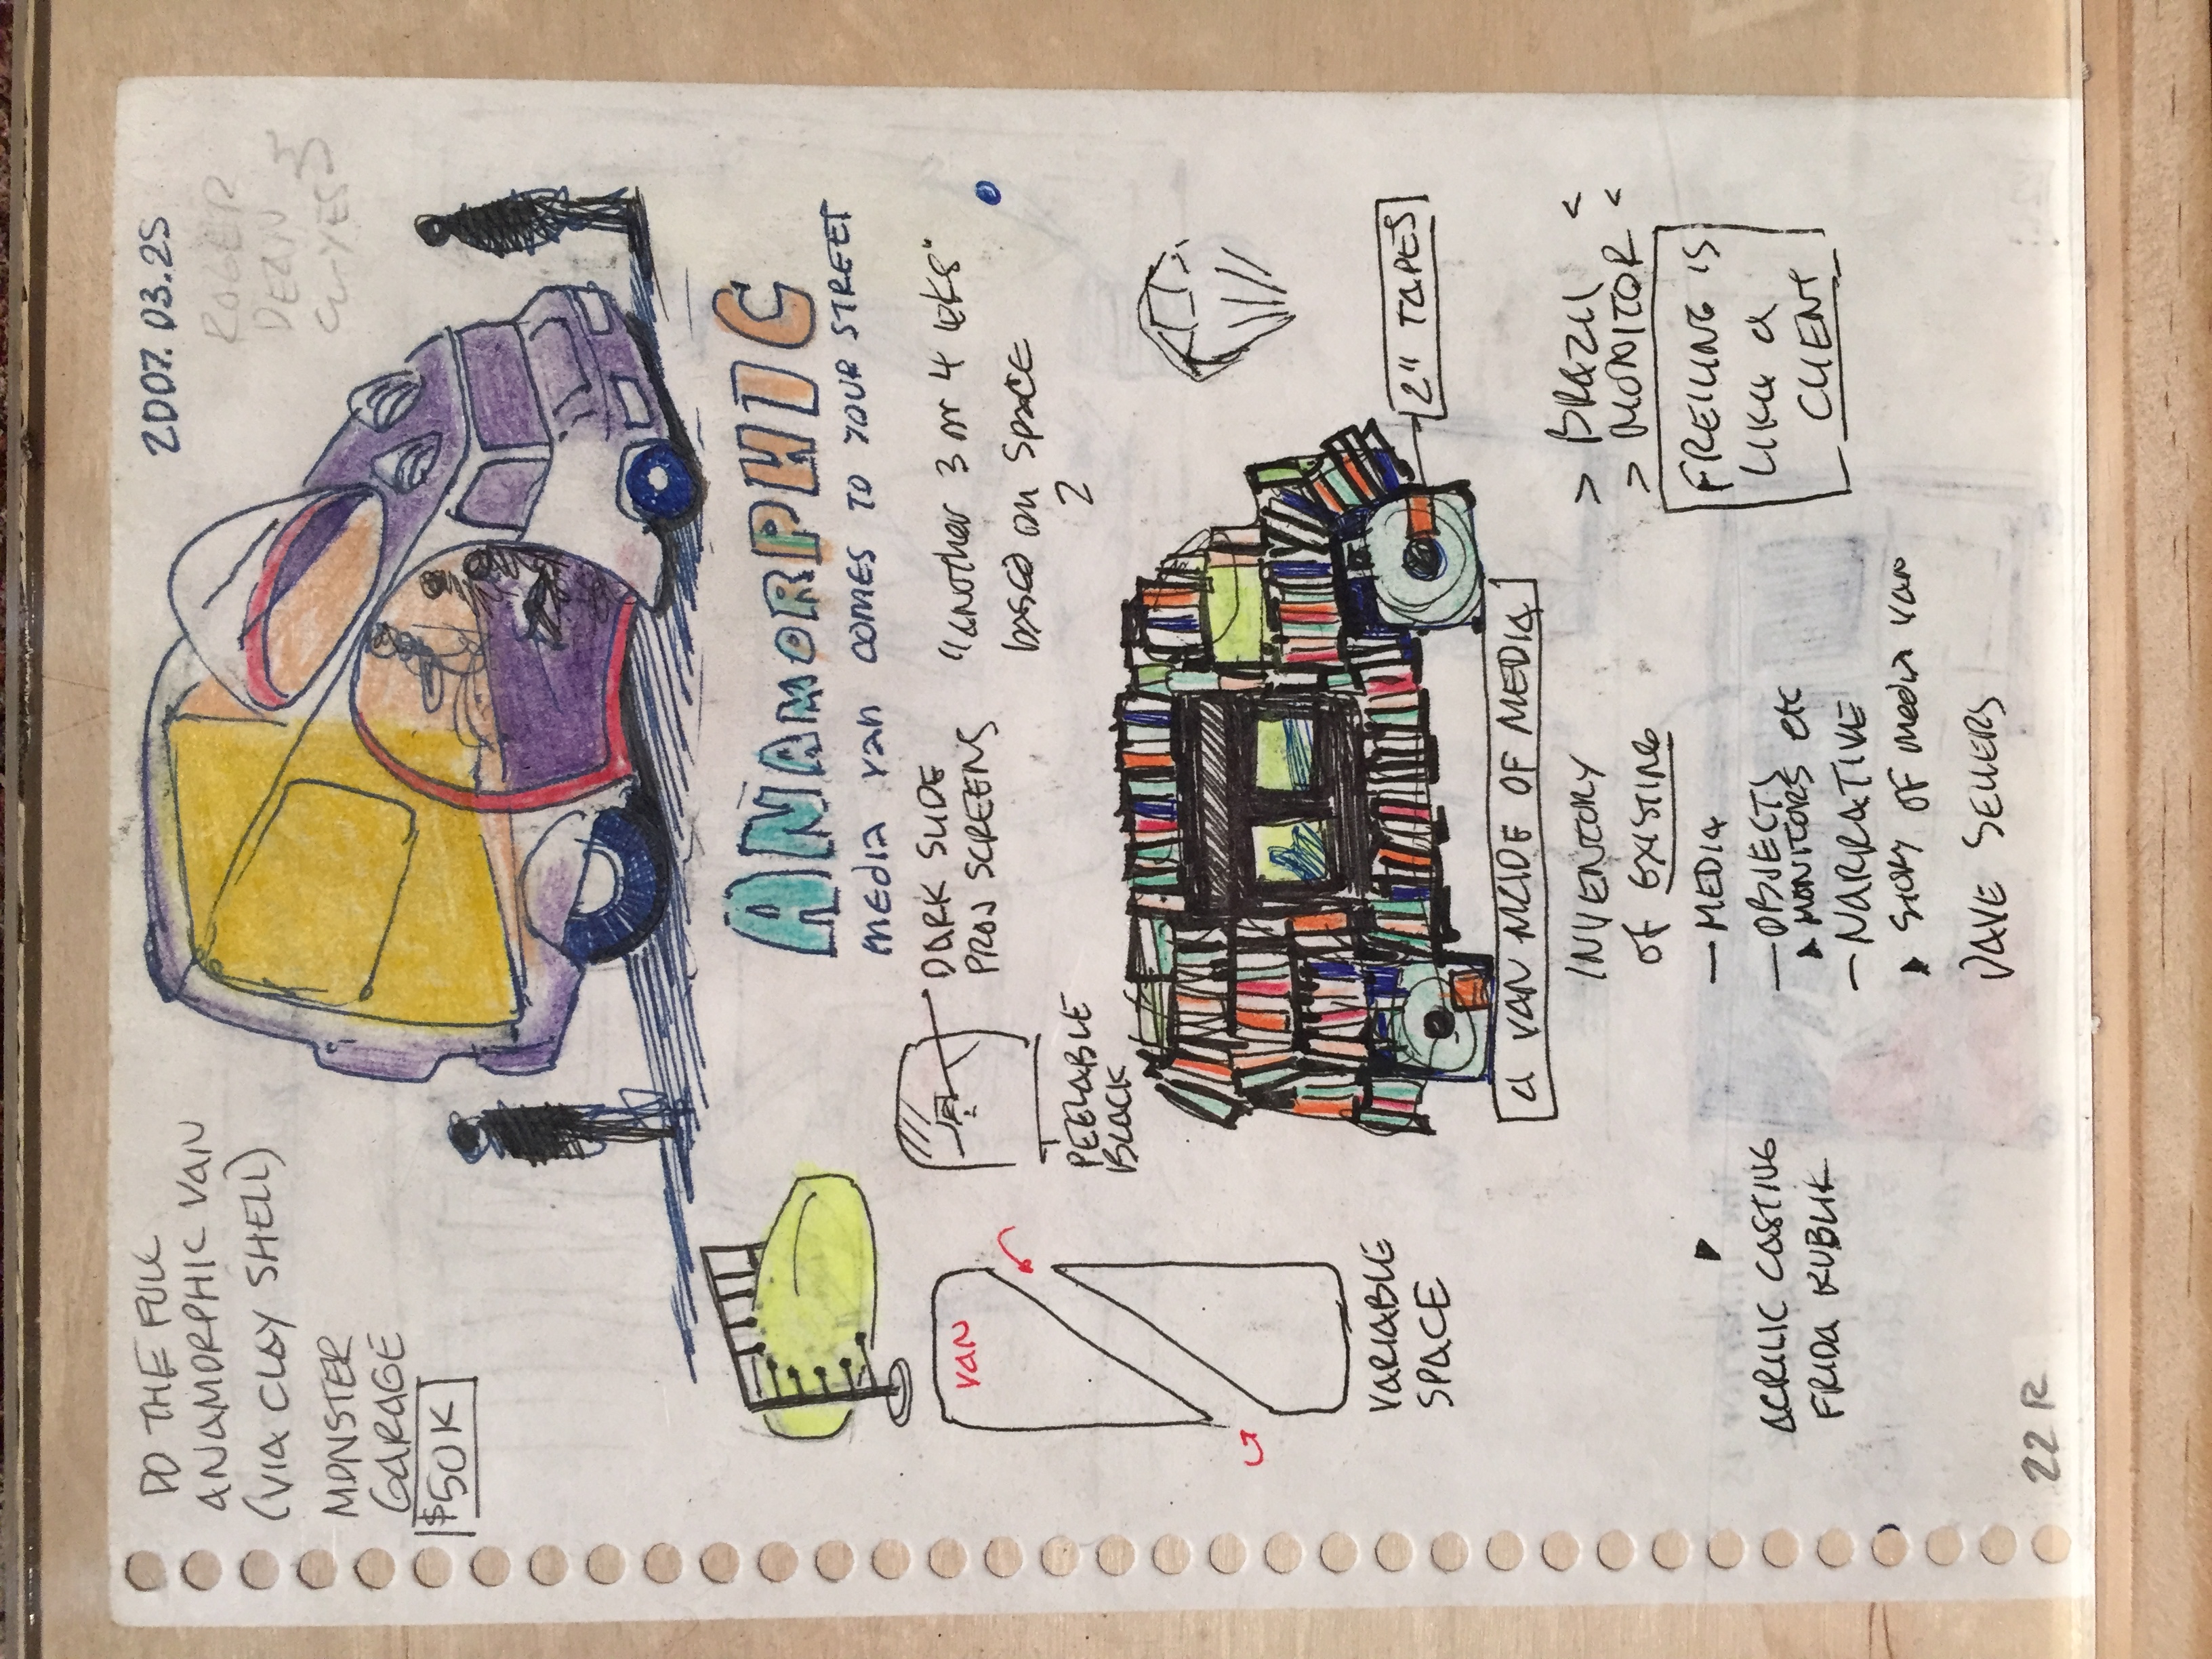 DO THE FULL
ANAMORPHIC VAN
(VIA CLAY SHELL)
MONSTER
GARAGE
$50K
2007.03.25
ROGER
DEAN
YES
ANAMORPHIC
media van COMES TO YOUR STREET
VAN
DARK SLIDE
PROJ SCREENS
PEELABLE
BLACK
"another 3 or 4
based on SPACE
2
VARIABLE
SPACE
2" TAPES
A VAN MADE OF MEDIA
INVENTORY
OF EXISTING
— MEDIA
— OBJECTS
MONITORS etc
— NARRATIVE
STORY OF media van
DAVE SELLERS
> BRAZIL <
> MONITOR <
FREILING IS
LIKE A
CLIENT
ACRILIC CASTING
FRIDA KUBLIK
22 R